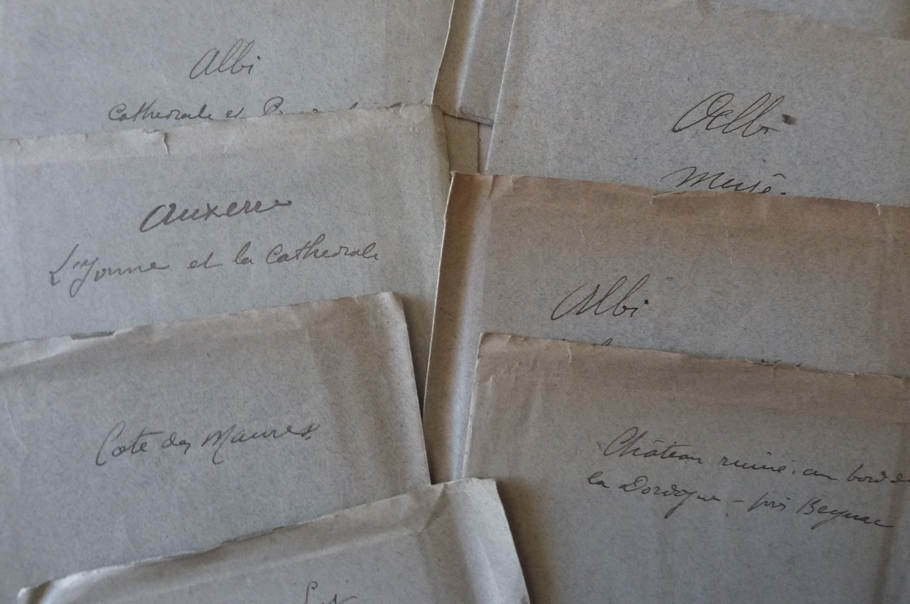 Albi
Cathedrale et
Auxerre
L'Yonne et la Cathedrale
Cote des Maures
Albi
Musé
Albi
Château ruiné, au bord de
la Dordogne - près Beynac